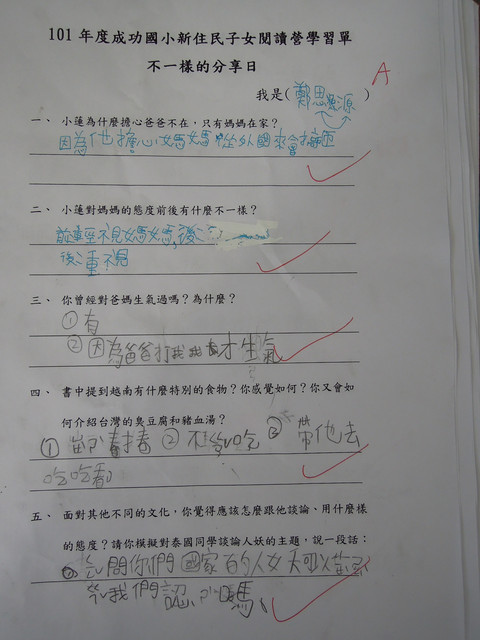 101 年度成功國小新住民子女閱讀營學習單
不一樣的分享日
A
我是(鄭思源)
一、 小蓮為什麼擔心爸爸不在，只有媽媽在家？
因為他擔心媽媽從外國來會
二、 小蓮對媽媽的態度前後有什麼不一樣？
不見媽媽,後
後
三、 你曾經對爸媽生氣過嗎？為什麼？
①有
②因為爸爸打我我才生氣
四、 書中提到越南有什麼特別的食物？你感覺如何？你又會如
何介紹台灣的臭豆腐和豬血湯？
① ② 不 吃 ③ 帶他去
吃吃看
五、 面對其他不同的文化，你覺得應該怎麼跟他談論、用什麼樣
的態度？請你模擬對泰國同學談論人妖的主題，說一段話：
問你們國家的人 可以
我們認 嗎